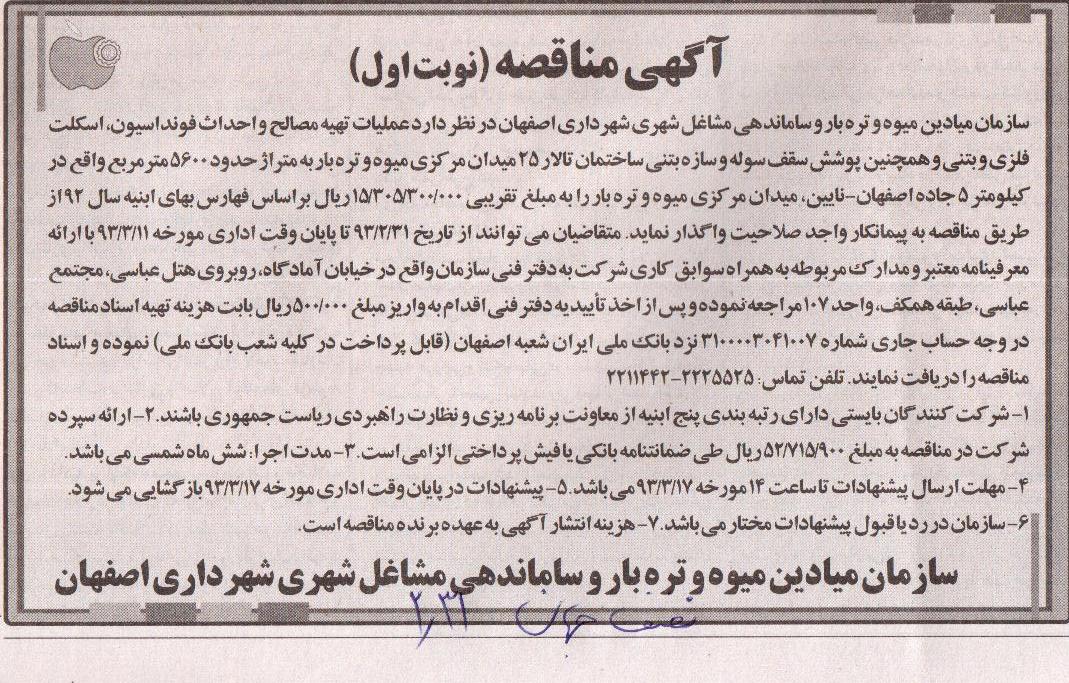 آگهی مناقصه (نوبت اول)
سازمان میادین میوه و تره بار و ساماندهی مشاغل شهری شهرداری اصفهان در نظر دارد عملیات تهیه مصالح و احداث فونداسیون، اسکلت
فلزی و بتنی و همچنین پوشش سقف سوله و سازه بتنی ساختمان تالار ۲۵ میدان مرکزی میوه و تره بار به متراژ حدود ۵۶۰۰ متر مربع واقع در
کیلومتر ۵ جاده اصفهان-نایین، میدان مرکزی میوه و تره بار را به مبلغ تقریبی ۱۵/۳۰۵/۳۰۰/۰۰۰ ریال بر اساس فهارس بهای ابنیه سال ۹۲ از
طریق مناقصه به پیمانکار واجد صلاحیت واگذار نماید. متقاضیان می توانند از تاریخ ۹۳/۲/۳۱ تا پایان وقت اداری مورخه ۹۳/۳/۱۱ با ارائه
معرفینامه معتبر و مدارک مربوطه به همراه سوابق کاری شرکت به دفتر فنی سازمان واقع در خیابان آمادگاه، روبروی هتل عباسی، مجتمع
عباسی، طبقه همکف، واحد ۱۰۷ مراجعه نموده و پس از اخذ تأییدیه دفتر فنی اقدام به واریز مبلغ ۵۰۰/۰۰۰ ریال بابت هزینه تهیه اسناد مناقصه
در وجه حساب جاری شماره ۳۱۰۰۰۰۳۰۴۱۰۰۷ نزد بانک ملی ایران شعبه اصفهان (قابل پرداخت در کلیه شعب بانک ملی) نموده و اسناد
مناقصه را دریافت نمایند. تلفن تماس: ۲۲۲۵۵۲۵-۲۲۱۱۴۴۲
۱- شرکت کنندگان بایستی دارای رتبه بندی پنج ابنیه از معاونت برنامه ریزی و نظارت راهبردی ریاست جمهوری باشند. ۲- ارائه سپرده
شرکت در مناقصه به مبلغ ۵۲/۷۱۵/۹۰۰ ریال طی ضمانتنامه بانکی یا فیش پرداختی الزامی است. ۳- مدت اجرا: شش ماه شمسی می باشد.
۴- مهلت ارسال پیشنهادات تا ساعت ۱۴ مورخه ۹۳/۳/۱۷ می باشد. ۵- پیشنهادات در پایان وقت اداری مورخه ۹۳/۳/۱۷ بازگشایی می شود.
۶- سازمان در رد یا قبول پیشنهادات مختار می باشد. ۷- هزینه انتشار آگهی به عهده برنده مناقصه است.
سازمان میادین میوه و تره بار و ساماندهی مشاغل شهری شهرداری اصفهان
نصف جهان ۲٫۳۱